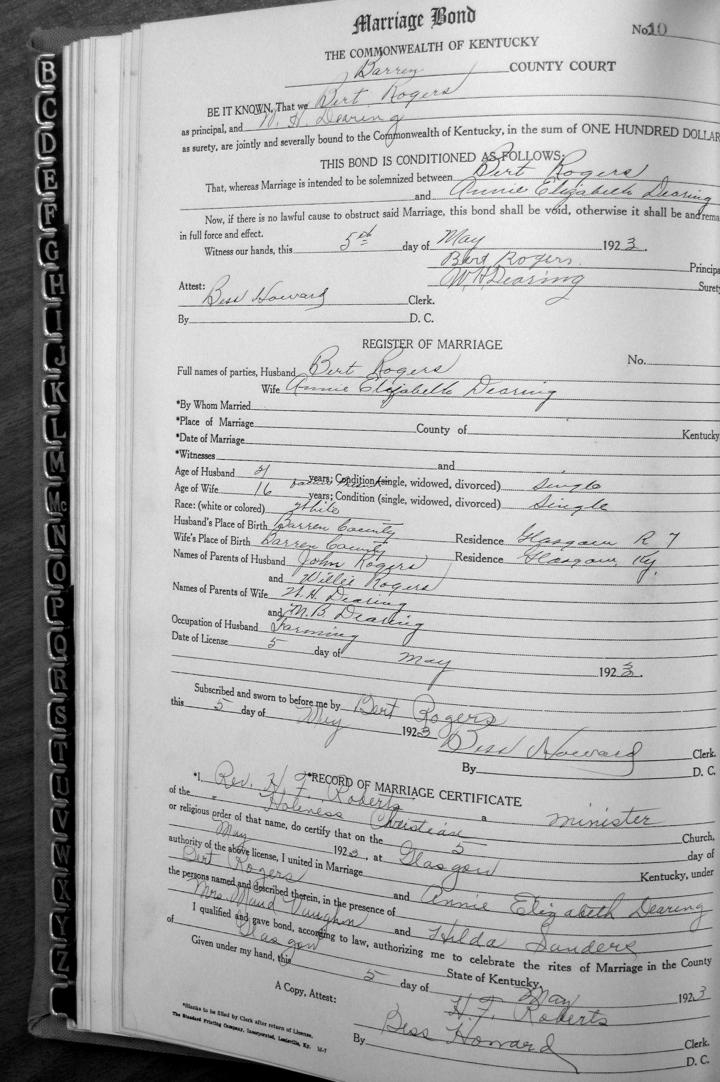 B
C
D
E
F
G
H
I
J
K
L
M
Mc
N
O
P
Q
R
S
T
U
V
W
X
Y
Z
Marriage Bond
No. 10
THE COMMONWEALTH OF KENTUCKY
Barren COUNTY COURT
BE IT KNOWN, That we Bert Rogers
as principal, and W. H. Dearing
as surety, are jointly and severally bound to the Commonwealth of Kentucky, in the sum of ONE HUNDRED DOLLAR
THIS BOND IS CONDITIONED AS FOLLOWS:
That, whereas Marriage is intended to be solemnized between Bert Rogers
and Annie Elizabeth Dearing
Now, if there is no lawful cause to obstruct said Marriage, this bond shall be void, otherwise it shall be and rema
in full force and effect.
Witness our hands, this 5th day of May 1923.
Bert Rogers Principa
W. H. Dearing Surety
Attest: Bess Howard Clerk.
By D. C.
REGISTER OF MARRIAGE
No.
Full names of parties, Husband Bert Rogers
Wife Annie Elizabeth Dearing
*By Whom Married
*Place of Marriage County of Kentucky
*Date of Marriage
*Witnesses and
Age of Husband 21 years; Condition (single, widowed, divorced) Single
Age of Wife 16 years; Condition (single, widowed, divorced) Single
Race: (white or colored) white
Husband's Place of Birth Barren County Residence Glasgow R 7
Wife's Place of Birth Barren County Residence Glasgow, Ky.
Names of Parents of Husband John Rogers
and Willie Rogers
Names of Parents of Wife W. H. Dearing
and M. B. Dearing
Occupation of Husband Farming
Date of License 5 day of May 1923
Subscribed and sworn to before me by Bert Rogers
this 5 day of May 1923 Bess Howard Clerk.
By D. C.
*RECORD OF MARRIAGE CERTIFICATE
*I, Rev. H. F. Roberts a minister
of the Holiness Christian Church,
or religious order of that name, do certify that on the 5 day of
May 1923, at Glasgow Kentucky, under
authority of the above license, I united in Marriage
Bert Rogers and Annie Elizabeth Dearing
the persons named and described therein, in the presence of
Mrs. Maud Vaughn and Hilda Sanders
I qualified and gave bond, according to law, authorizing me to celebrate the rites of Marriage in the County
of Glasgow State of Kentucky.
Given under my hand, this 5 day of May 1923
H. F. Roberts
A Copy, Attest: Bess Howard Clerk.
By D. C.
*Blanks to be filled by Clerk after return of License.
The Standard Printing Company, Incorporated, Louisville, Ky.